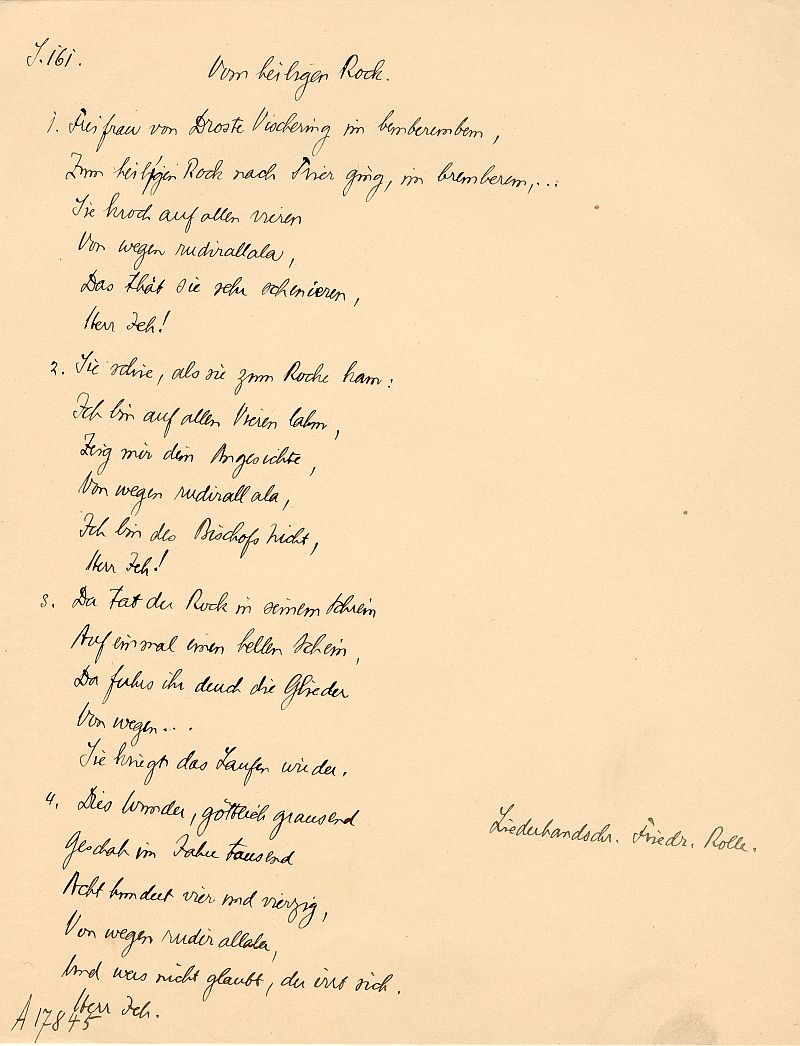 S. 161.
Vom heiligen Rock.
1. Freifrau von Droste Vischering im bemberembem,
Zum heiligen Rock nach Trier ging, im bremberem,...
Sie kroch auf allen vieren
Von wegen rudirallala,
Das thät sie sehr schenieren,
Herr Jeh!
2. Sie schrie, als sie zum Rocke kam:
Ich bin auf allen Vieren lahm,
Zeig mir dein Angesichte,
Von wegen rudirallala,
Ich bin des Bischofs Nicht,
Herr Jeh!
3. Da tat der Rock in seinem Schrein
Auf einmal einen hellen Schein,
Da fuhrs ihr durch die Glieder
Von wegen...
Sie kriegt das Laufen wieder.
4. Dies Wunder, göttlich grausend
Geschah im Jahre tausend
Acht hundert vier und vierzig,
Von wegen rudirallala,
Und wers nicht glaubt, der irrt sich.
Herr Jeh.
Liederhandschr. Friedr. Rolle.
A 17845